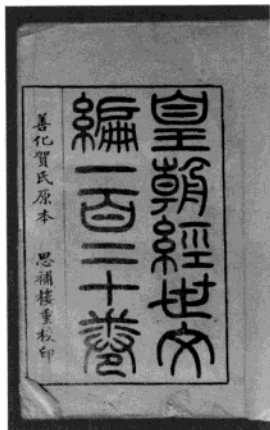 皇朝經世文
編一百二十卷
善化賀氏原本 思補樓重校印